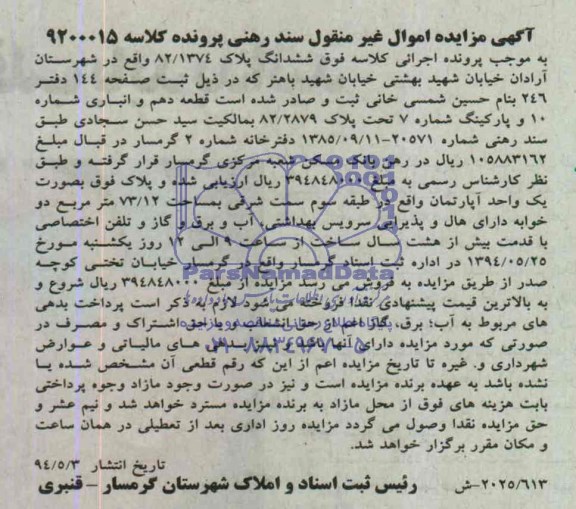 آگهی مزایده اموال غیر منقول سند رهنی پرونده کلاسه ۹۲۰۰۰۱۵
به موجب پرونده اجرائی کلاسه فوق ششدانگ پلاک ۸۲/۱۳۷۴ واقع در شهرستان
آرادان خیابان شهید بهشتی خیابان شهید باهنر که در ذیل ثبت صفحه ۱۴۴ دفتر
۲۴۶ بنام حسین شمسی خانی ثبت و صادر شده است قطعه دهم و انباری شماره
۱۰ و پارکینگ شماره ۷ تحت پلاک ۸۲/۲۸۷۹ بمالکیت سید حسن سجادی طبق
سند رهنی شماره ۲۰۵۷۱-۱۳۸۵/۰۹/۱۱ دفترخانه شماره ۲ گرمسار در قبال مبلغ
۱۰۵۸۸۳۱۶۲ ریال در رهن بانک مسکن شعبه مرکزی گرمسار قرار گرفته و طبق
نظر کارشناس رسمی به مبلغ ۳۹۴۸۴۸۰۰۰ ریال ارزیابی شده و پلاک فوق بصورت
یک واحد آپارتمان واقع در طبقه سوم سمت شرقی بمساحت ۷۳/۱۲ متر مربع دو
خوابه دارای هال و پذیرایی سرویس بهداشتی، آب و برق و گاز و تلفن اختصاصی
با قدمت بیش از هشت سال ساخت از ساعت ۹ الی ۱۲ روز یکشنبه مورخ
۱۳۹۴/۰۵/۲۵ در اداره ثبت اسناد گرمسار واقع در گرمسار خیابان تختی کوچه
صدر از طریق مزایده به فروش می رسد مزایده از مبلغ ۳۹۴۸۴۸۰۰۰ ریال شروع و
به بالاترین قیمت پیشنهادی نقدا فروخته می شود، لازم به ذکر است پرداخت بدهی
های مربوط به آب؛ برق، گاز اعم از حق انشعاب و یا حق اشتراک و مصرف در
صورتی که مورد مزایده دارای آنها باشد و نیز بدهی های مالیاتی و عوارض
شهرداری و. غیره تا تاریخ مزایده اعم از این که رقم قطعی آن مشخص شده یا
نشده باشد به عهده برنده مزایده است و نیز در صورت وجود مازاد وجوه پرداختی
بابت هزینه های فوق از محل مازاد به برنده مزایده مسترد خواهد شد و نیم عشر و
حق مزایده نقدا وصول می گردد مزایده روز اداری بعد از تعطیلی در همان ساعت
و مکان مقرر برگزار خواهد شد.
تاریخ انتشار ۹۴/۵/۳
۲۰۲۵/۶۱۳-ش رئیس ثبت اسناد و املاک شهرستان گرمسار - قنبری
ParsNamadData
۰۲۱-۸۸۳۴۹۶۷۰-۵